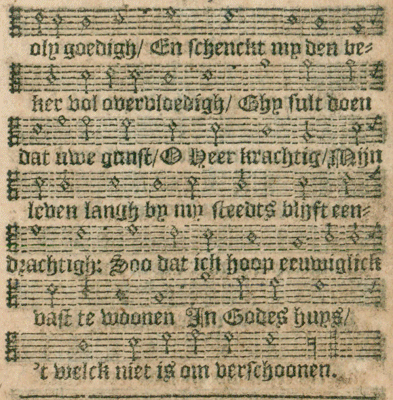 oly goedigh/ En schenckt my den be-
ker vol overvloedigh/ Ghy sult doen
dat uwe gunst/ O Heer krachtig/ Mijn
leven langh by my steedts blyft een-
drachtigh: Soo dat ick hoop eeuwiglick
vast te woonen In Godes huys/
't welck niet is om verschoonen.